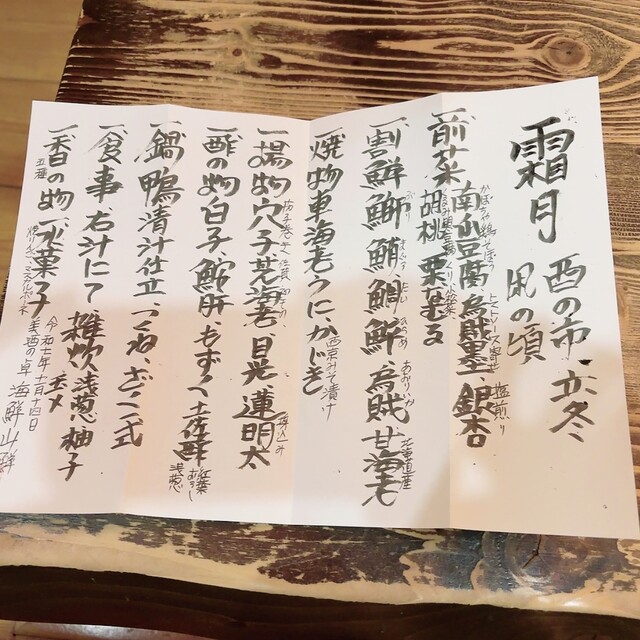 霜月
酉の市、立冬
凩の頃
一、前菜 南瓜豆腐、烏賊墨、銀杏
胡桃 栗
一、割鮮 鰤 鯛 烏賊 甘海老
北海道産
一、焼物 車海老うに、かじき
西京みそ漬け
一、揚物 穴子 海老 蓮明太
一、酢の物 白子、鮟肝、もずく 土佐酢
浅葱
一、鍋 鴨清汁仕立、つくね、ざく式
一、食事、右汁にて 雑炊 浅葱 柚子
一、香の物 一、水菓子
五種
令和七年十一月十四日
美酒の卓 海鮮山鮮